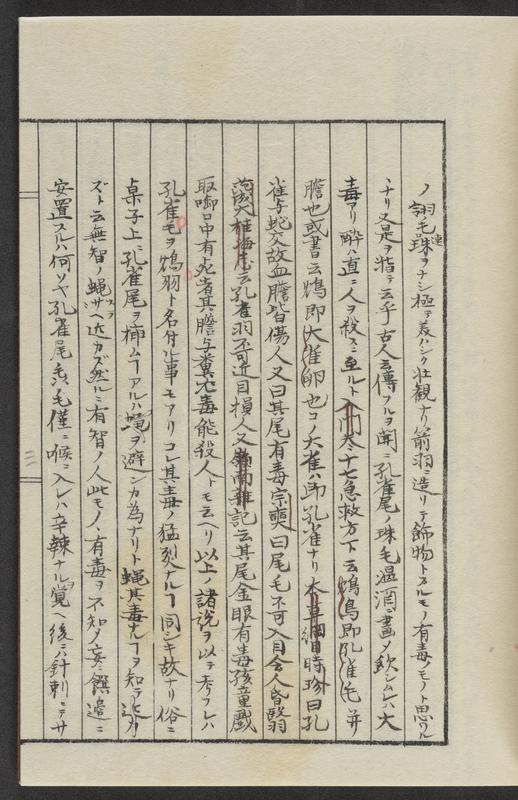 ノ翎毛珠連ヲナシ極テ美ハシク壮観ナリ箭羽ニ造リテ飾物トスルモノ有毒ノモノト思ワル
ナリ又是ヲ指テ云乎古人云傳フルヲ聞ニ孔雀尾ノ珠毛温酒ニ畫メ飲シムレハ大
毒アリ酔ハ直ニ人ヲ殺スニ至ルト入門巻ノ十七急救方下云鴆鳥即孔雀毛并
膽也或書云鴆即大雀卵也コノ大雀ハ即孔雀ナリ本草綱目時珍曰孔
雀与蛇交故血膽皆傷人又曰其尾有毒宗奭曰尾毛不可入目令人昏翳
范成大桂海虞云孔雀羽不可近目損人又嶺南雑記云其尾金眼有毒孩童戯
取啣口中有死者其膽与糞尤毒能殺人トモ云ヘリ以上ノ諸説ヲ以テ考フレハ
孔雀毛ヲ鴆羽ト名付ル事モアリコレ其毒ノ猛烈ナルヿ同シキ故ナリ俗ニ
桌子上ニ孔雀尾ヲ挿ムヿアルハ蝿ヲ避ンカ為ナリト蝿其毒尤ヿヲ知テ近カ
ズト云無智ノ蝿サヘ近カズ然ルニ有智ノ人此モノヽ有毒ヲ不知メ妄ニ饌邉ニ
安置スルハ何ソヤ孔雀尾ノ毛僅ニ喉ニ入レハ辛辣ナルヲ覚ヘ後ニハ針刺ニテサ
三